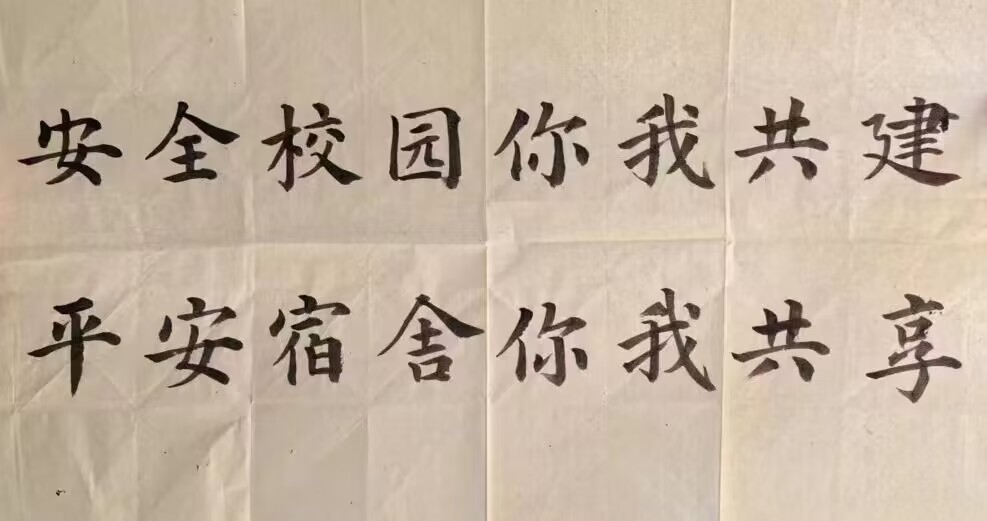 安全校园你我共建
平安宿舍你我共享